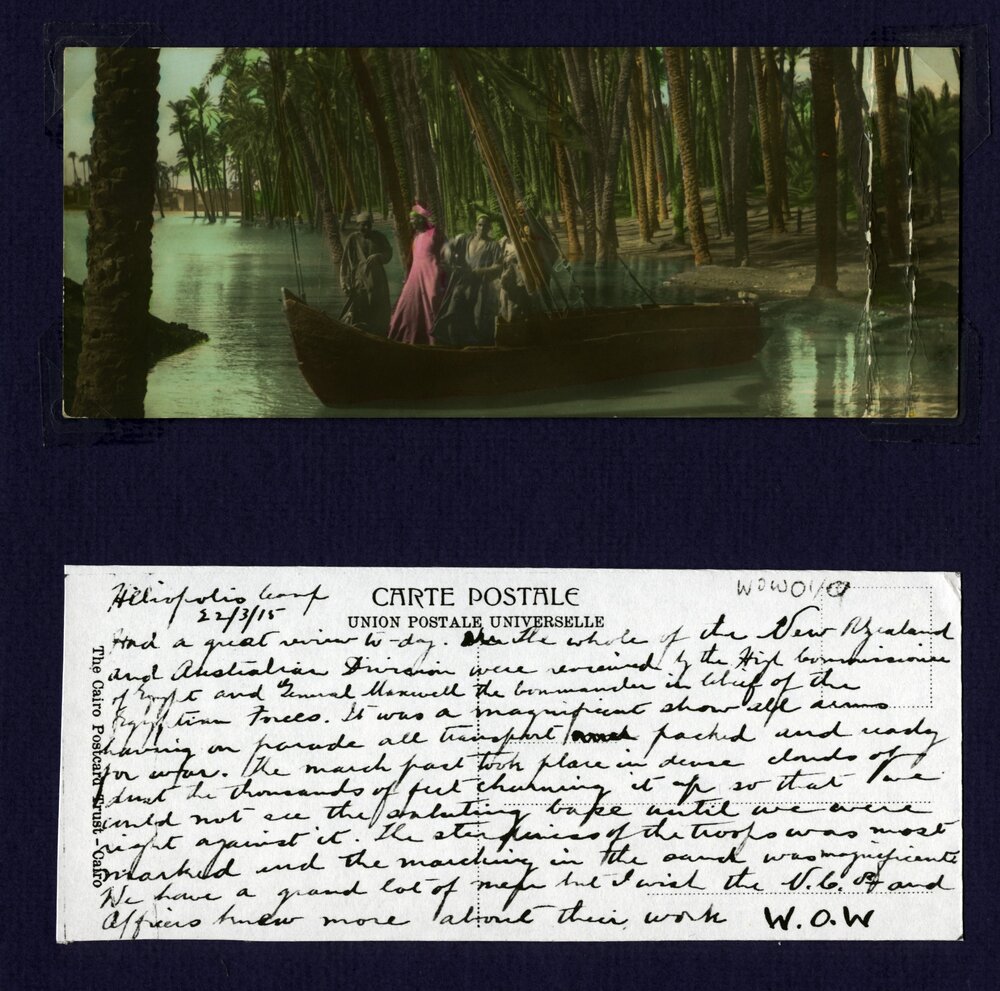 Heliopolis Camp
22/3/15
CARTE POSTALE
UNION POSTALE UNIVERSELLE
WOW01/
The Cairo Postcard Trust - Cairo
Had a great review to-day. the whole of the New Zealand
and Australian Division were reviewed by the High Commissioner
of Egypt and General Maxwell the Commander in Chief of the
Egyptian Forces. It was a magnificent show all arms
having on parade all transport packed and ready
for war. The march past took place in dense clouds of
dust the thousands of feet churning it up so that we
could not see the saluting base until we were
right against it. The steadiness of the troops was most
marked and the marching in the sand was magnificent
We have a grand lot of men but I wish the N.C. and
Officers knew more about their work W.O.W